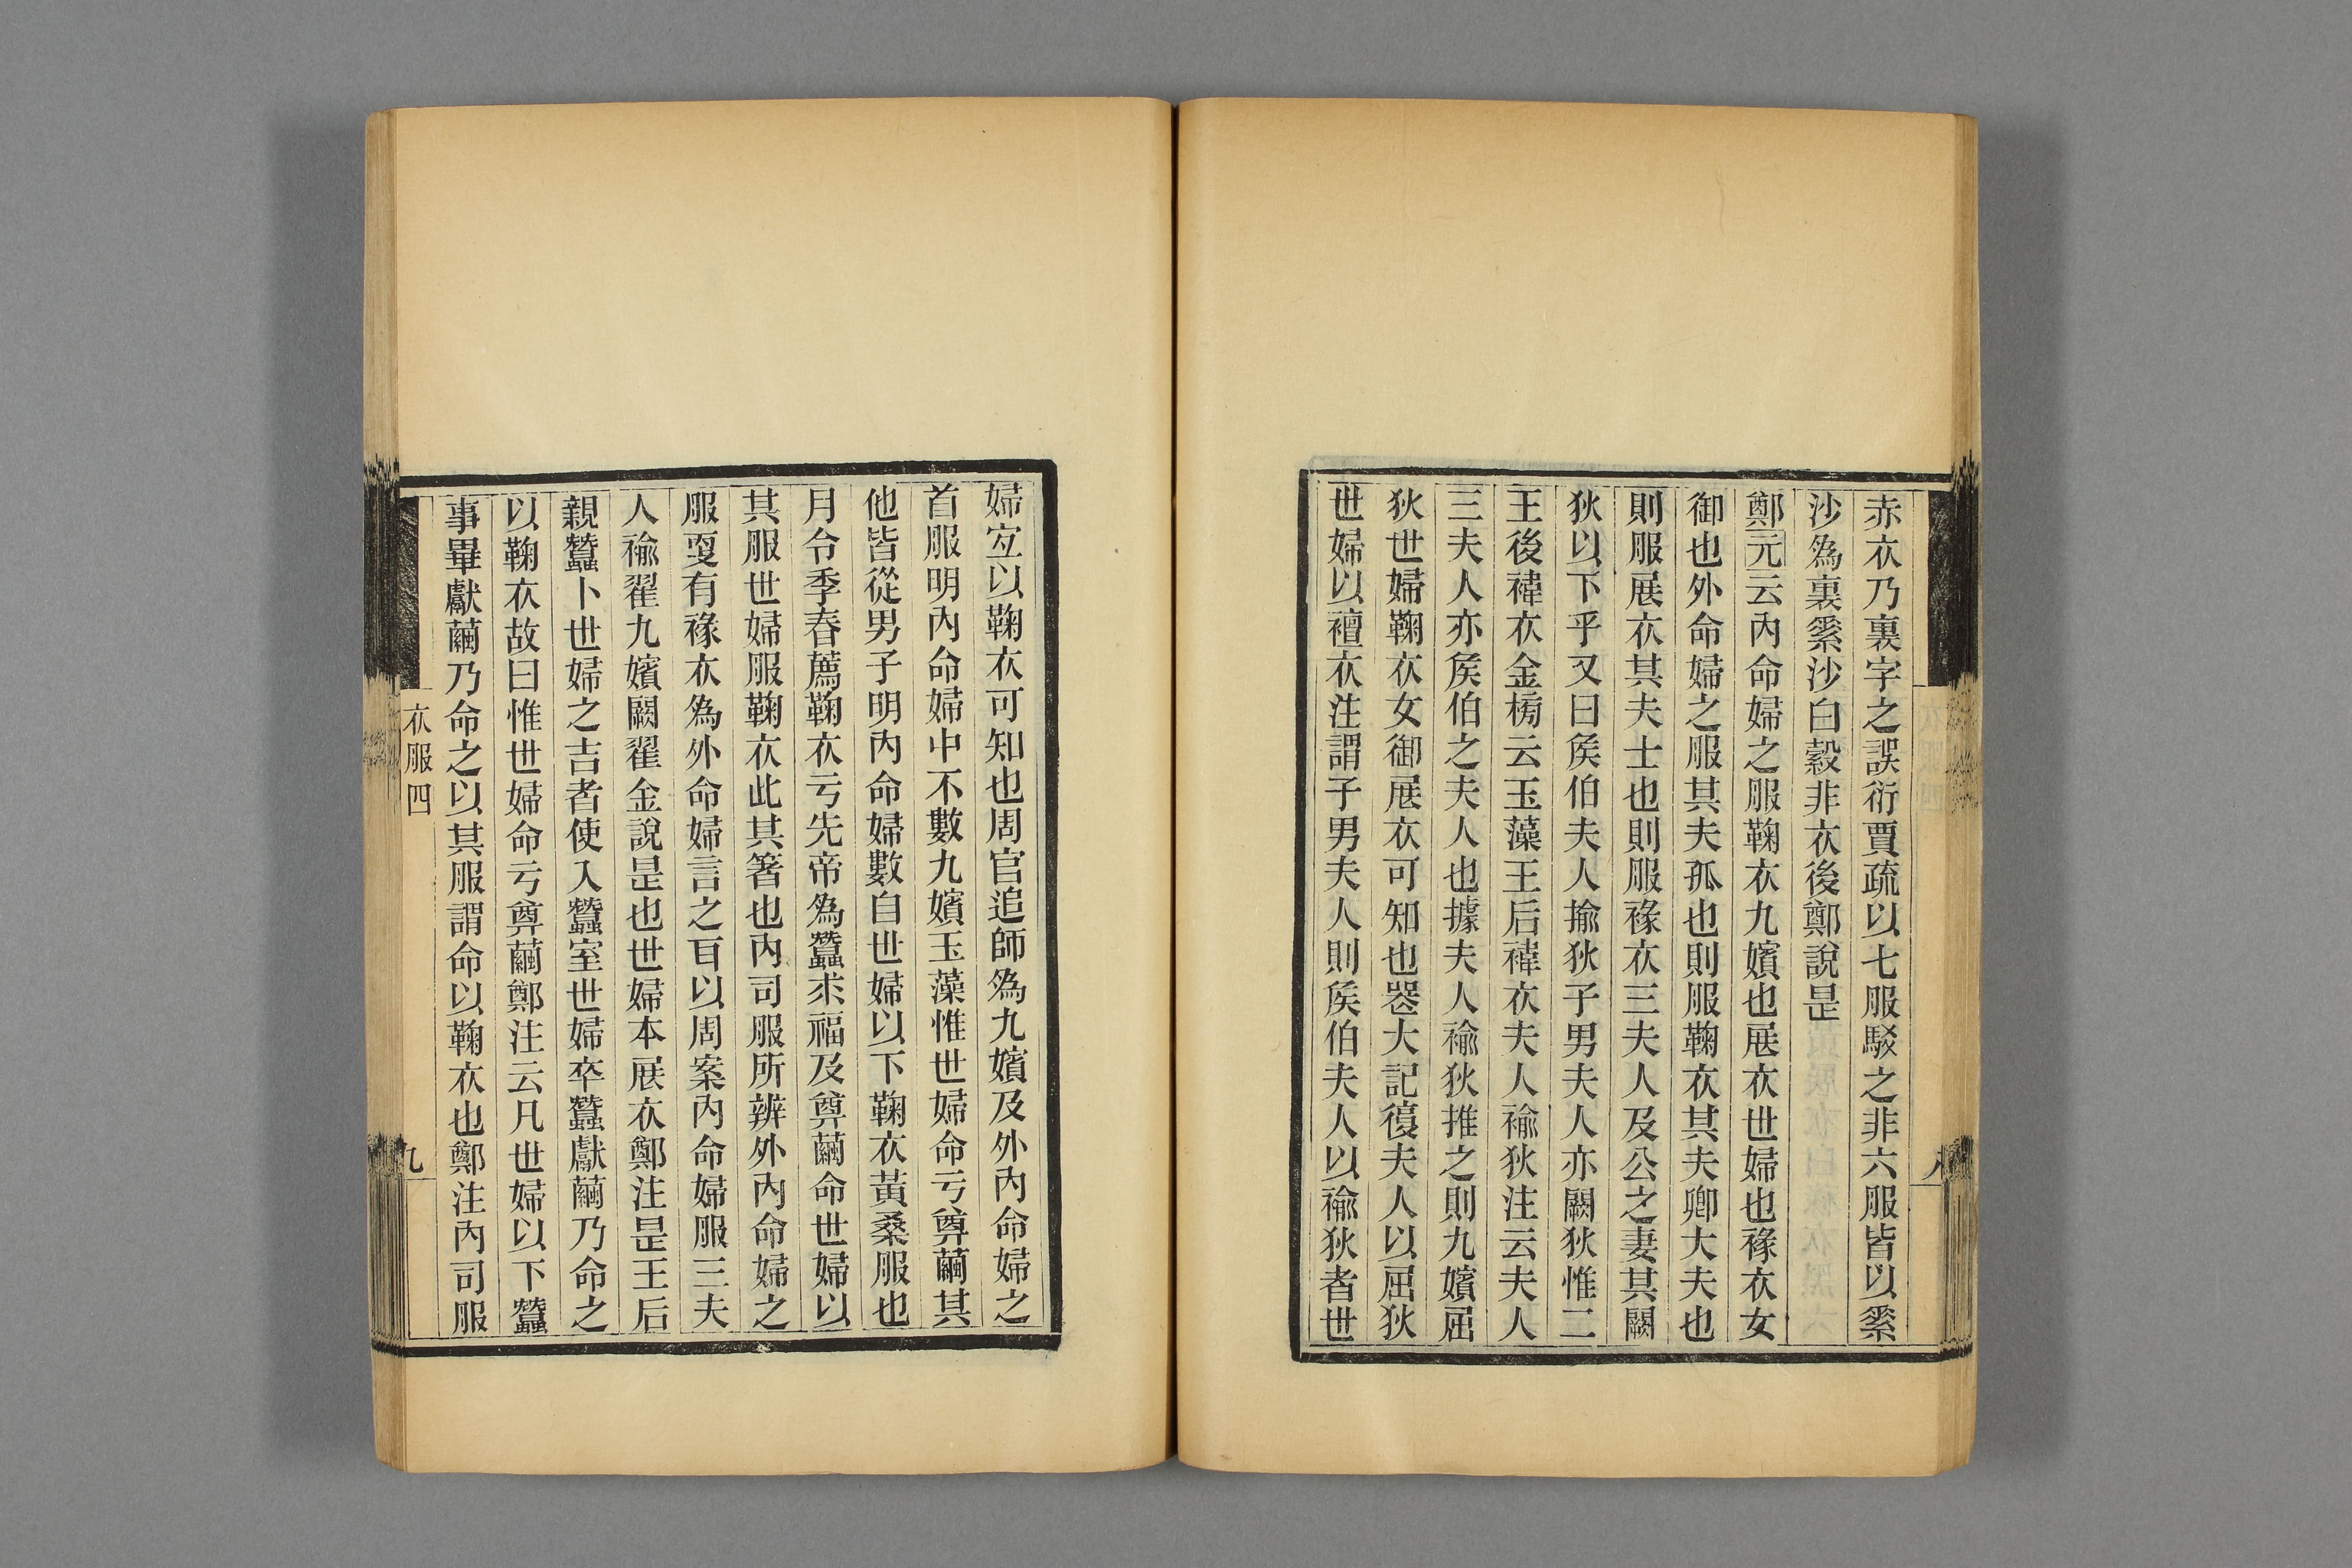 赤衣乃裏字之誤衍賈疏以七服駁之非六服皆以綠
沙爲裏綠沙白縠非衣後鄭說是
鄭元云內命婦之服鞠衣九嬪也展衣世婦也褖衣女
御也外命婦之服其夫孤也則服鞠衣其夫卿大夫也
則服展衣其夫士也則服褖衣三夫人及公之妻其闕
狄以下乎又曰矦伯夫人揄狄子男夫人亦闕狄惟二
王後褘衣金榜云玉藻王后褘衣夫人褕狄注云夫人
三夫人亦矦伯之夫人也據夫人褕狄推之則九嬪屈
狄世婦鞠衣女御展衣可知也器大記復夫人以屈狄
世婦以襢衣注謂子男夫人則矦伯夫人以褕狄者世
婦宐以鞠衣可知也周官追師爲九嬪及外內命婦之
首服明內命婦中不數九嬪玉藻惟世婦命亏奠繭其
他皆從男子明內命婦數自世婦以下鞠衣黃桑服也
月令季春薦鞠衣亏先帝爲蠶求福及奠繭命世婦以
其服世婦服鞠衣此其箸也內司服所辨外內命婦之
服㪅有褖衣爲外命婦言之𦣻以周案內命婦服三夫
人褕翟九嬪闕翟金說是也世婦本展衣鄭注是王后
親蠶卜世婦之吉者使入蠶室世婦卒蠶獻繭乃命之
以鞠衣故曰惟世婦命亏奠繭鄭注云凡世婦以下蠶
事畢獻繭乃命之以其服謂命以鞠衣也鄭注內司服
衣服四
九